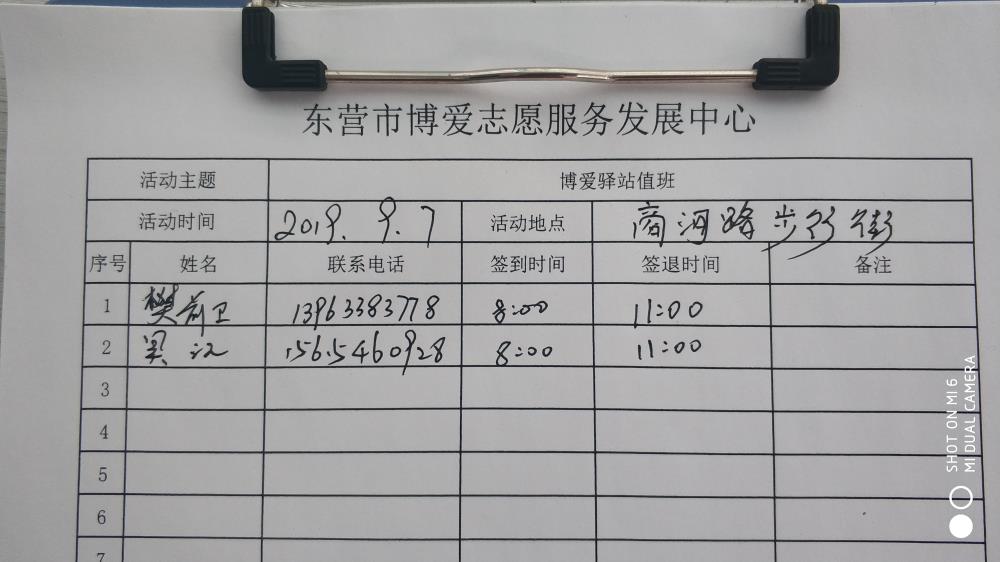 东营市博爱志愿服务发展中心
活动主题 博爱驿站值班
活动时间 2019. 9. 7 活动地点 商河路步行街
序号 姓名 联系电话 签到时间 签退时间 备注
1 樊前卫 13963383778 8:00 11:00
2 吴 8:00 11:00
3
4
5
6
7
SHOT ON MI 6
MI DUAL CAMERA